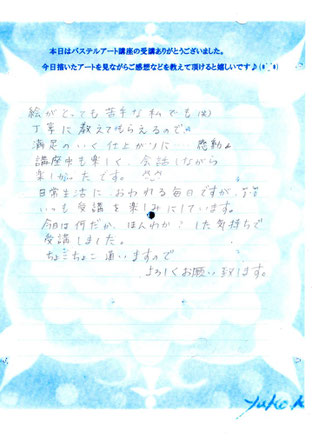 本日はパステルアート講座の受講ありがとうございました。
今日描いたアートを見ながらご感想などを教えて頂けると嬉しいです♪(*'_'*)
絵がとっても苦手な私でも(笑)
丁寧に教えてもらえるので
満足のいく仕上がりに… 感動♪
講座中も楽しく、会話しながら
楽しかったです。^o^
日常生活に、おわれる毎日ですが、
いつも受講を楽しみにしています。
今日は何だか、ほんわか♡した気持ちで
受講しました。
ちょこちょこ通いますので
よろしくお願い致します。
Yuko K